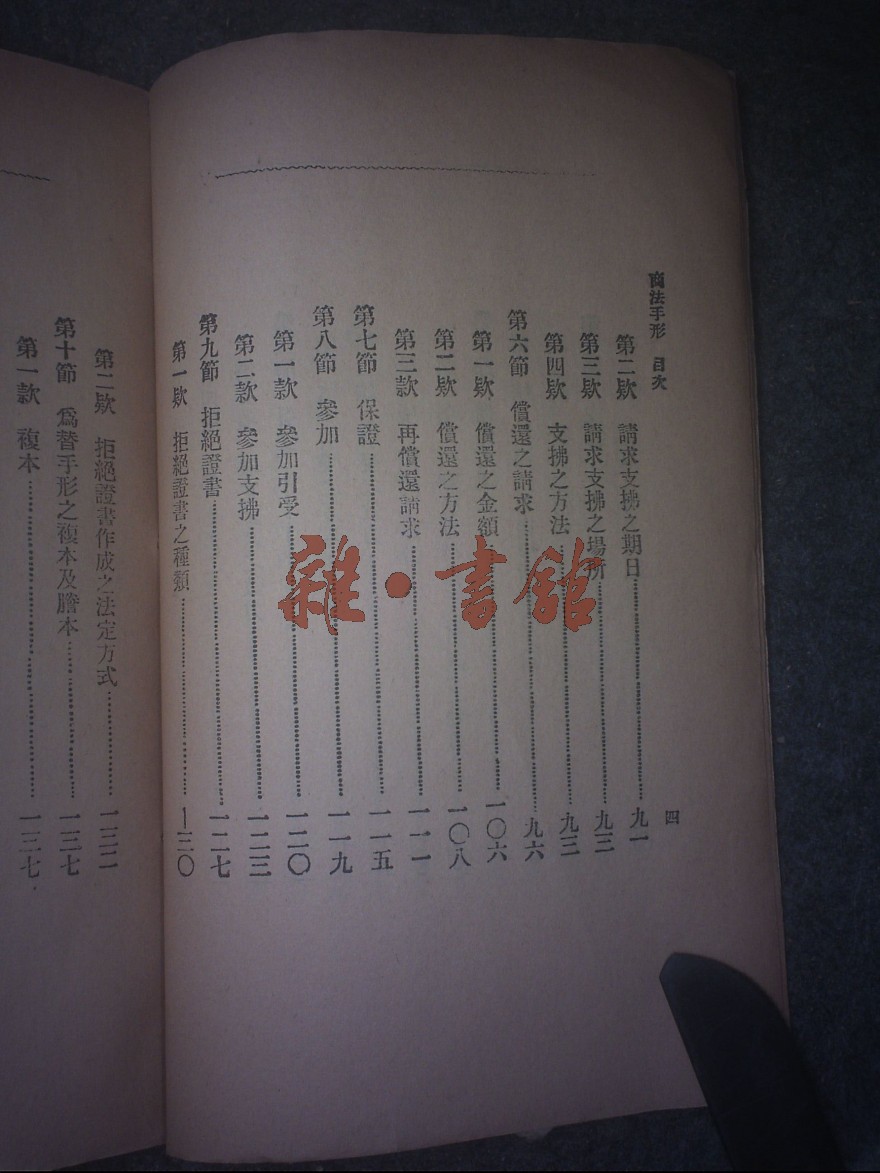 商法手形 目次
四
第二款 請求支拂之期日……九一
第三款 請求支拂之場所……九三
第四款 支拂之方法……九三
第六節 償還之請求……九六
第一款 償還之金額……一〇六
第二款 償還之方法……一〇八
第三款 再償還請求……一一一
第七節 保證……一一五
第八節 參加……一一九
第一款 參加引受……一二〇
第二款 參加支拂……一二三
第九節 拒絕證書……一二七
第一款 拒絕證書之種類……一三〇
第二款 拒絕證書作成之法定方式……一三二
第十節 爲替手形之複本及謄本……一三七
第一款 複本……一三七
雜·書館